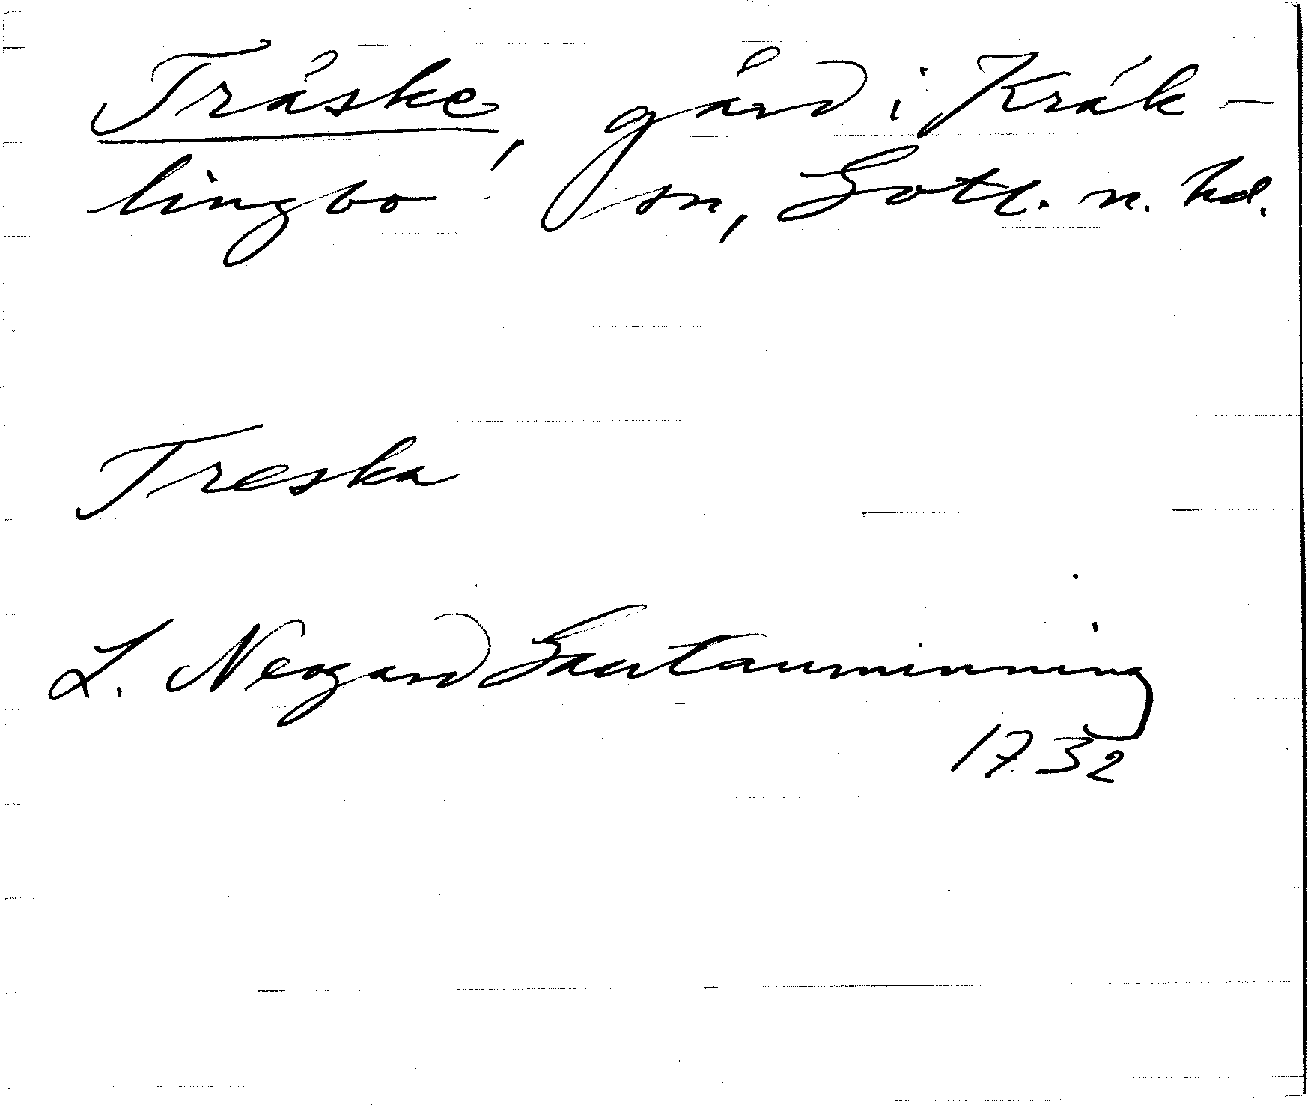 Tråske, gård i Kräk-
lingbo sn, Gotl. n. hd.
Treska
L. Neogard Gautauminning
1732